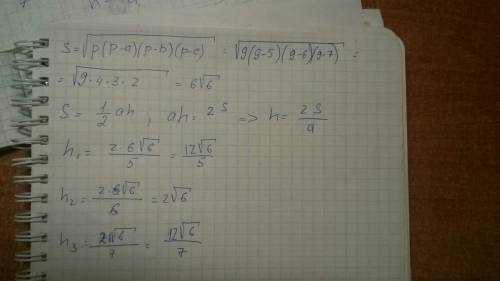 S = √(p(p-a)(p-b)(p-c)) = √(9(9-5)(9-6)(9-7)) =
= √(9·4·3·2) = 6√6
S = 1/2 ah ; ah = 2S => h = 2S/a
h₁ = 2·6√6/5 = 12√6/5
h₂ = 2·6√6/6 = 2√6
h₃ = √6/7 = 12√6/7